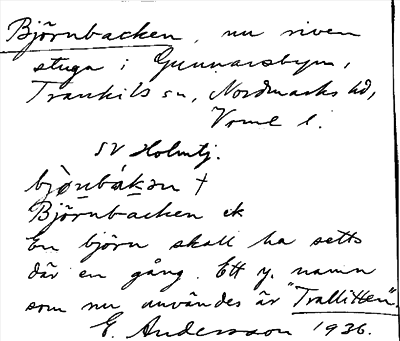 Björnbacken, nu riven
stuga i Gunnarsbyn,
Trankils sn, Nordmarks hd,
Vrml l.
SV Holmtj.
bjö̀nbák̀ən †
Björnbacken ek
En björn skall ha setts
där en gång. Ett y. namn
som nu användes är "Trallitten".
E. Andersson 1936.